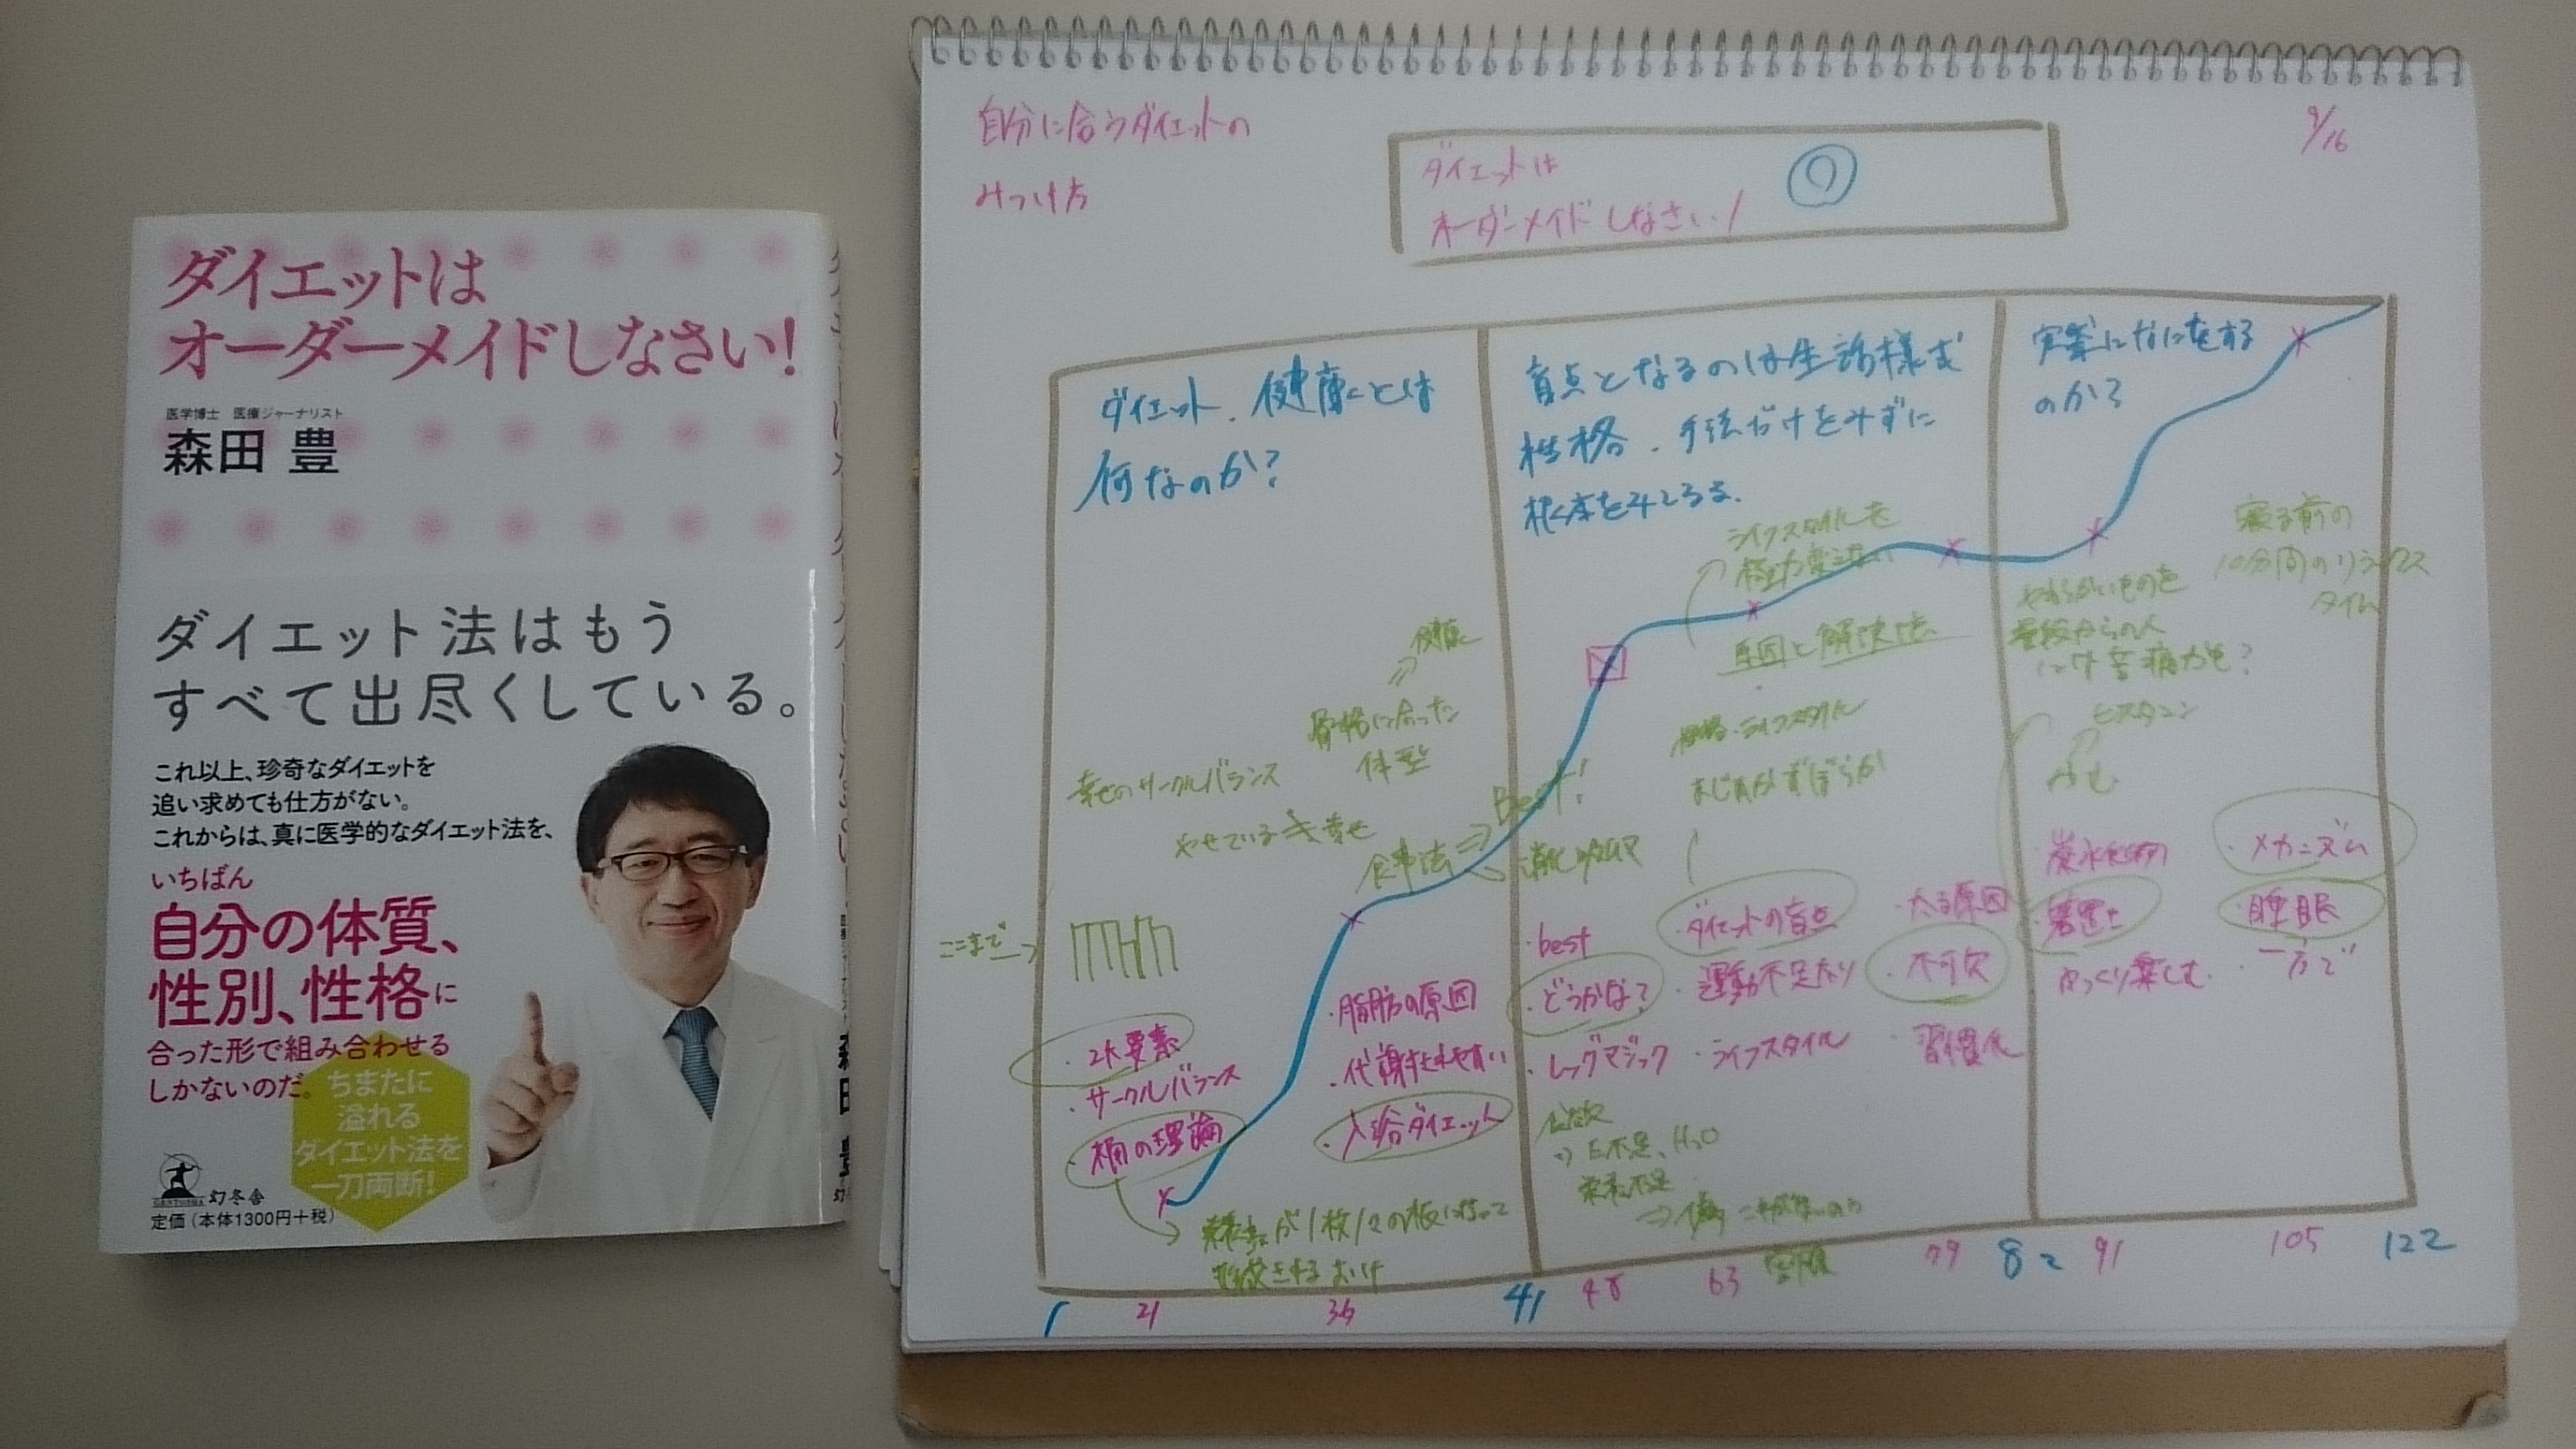 ダイエットは
オーダーメイドしなさい!
医学博士 医療ジャーナリスト
森田 豊
ダイエット法はもう
すべて出尽くしている。
これ以上、珍奇なダイエットを
追い求めても仕方がない。
これからは、真に医学的なダイエット法を、
いちばん
自分の体質、
性別、性格に
合った形で組み合わせる
しかないのだ。
ちまたに
溢れる
ダイエット法を
一刀両断!
GENTOSHA 幻冬舎
定価(本体1300円+税)
自分に合うダイエットの
みつけ方
ダイエットは
オーダーメイドしなさい!
9/16
ダイエット、健康とは
何なのか?
盲点となるのは生活様式
性格、手法だけをみずに
根本をみとる。
実際になにをする
のか?
ライフスタイルを
極力変えない
原因と解決法
性格・ライフスタイル
まじめかずぼらか
寝る前の
10分間のリラックス
タイム
やわらかいものを
ヒスタミン
健康
骨格に合った
体型
幸せのサークルバランス
やせている≠幸せ
食事法⇒Best!
ここまで→
・2大要素
・サークルバランス
・桶の理論
・脂肪の原因
・代謝
・入浴ダイエット
・best
・どうかな?
・レッグマジック
・ダイエットの盲点
・運動不足
・ライフスタイル
・太る原因
・不可欠
・習慣化
・炭水化物
・箸置き
ゆっくり楽しむ
・メカニズム
・睡眠
・一方で
栄養素が1枚1枚の板になって
形成される おけ
不足、H₂O
栄養不足
空腹
1
21
36
41
48
63
79
82
91
105
122